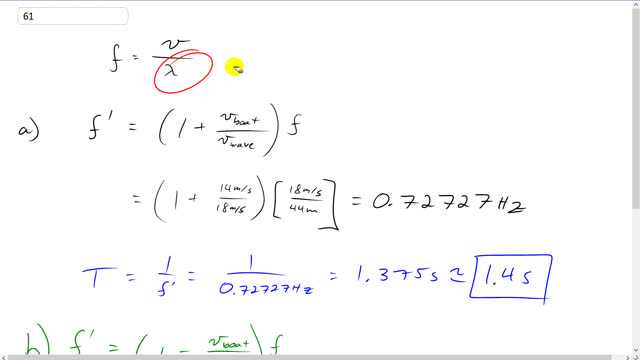 61
f = v / λ =
a) f' = (1 + v_boat / v_wave) f
= (1 + 14m/s / 18m/s) [18m/s / 44m] = 0.72727 Hz
T = 1 / f' = 1 / 0.72727Hz = 1.375s ≈ 1.4s
b) f' = (1 - v_boat / ) f